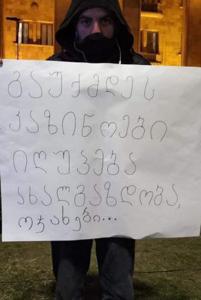 გაუქმდეს
კაზინოები
იღუპება
ახალგაზდობა,
ოჯახები...